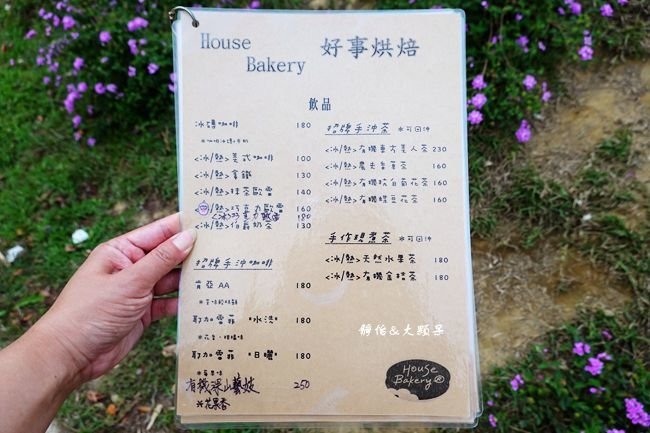 House Bakery
好事烘焙
飲品
冰磚咖啡 180
<冰/熱>美式咖啡 100
<冰/熱>拿鐵 130
<冰/熱>抹茶歐蕾 140
<冰/熱>巧克力歐蕾 160
180
<冰/熱>伯爵奶茶 130
招牌手沖咖啡
肯亞AA 180
耶加雪菲 "水洗" 180
耶加雪菲 "日曬" 180
有機深山藝妓 250
*花果香
招牌手沖茶 *可回沖
<冰/熱>有機東方美人茶 230
160
<冰/熱>有機杭白菊花茶 160
<冰/熱>有機蝶豆花茶 160
手作現煮茶 *可回沖
<冰/熱>天然水果茶 180
<冰/熱>有機金桔茶 180
House Bakery®